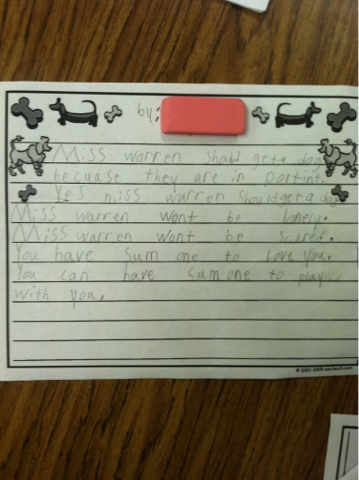 by:
Miss warren shald get a dog
becuase they are in portint.
Yes miss warren should get a dog
Miss warren wont be lonely.
Miss warren wont be scared.
You have sum one to love you.
You can have sum one to play
with you.